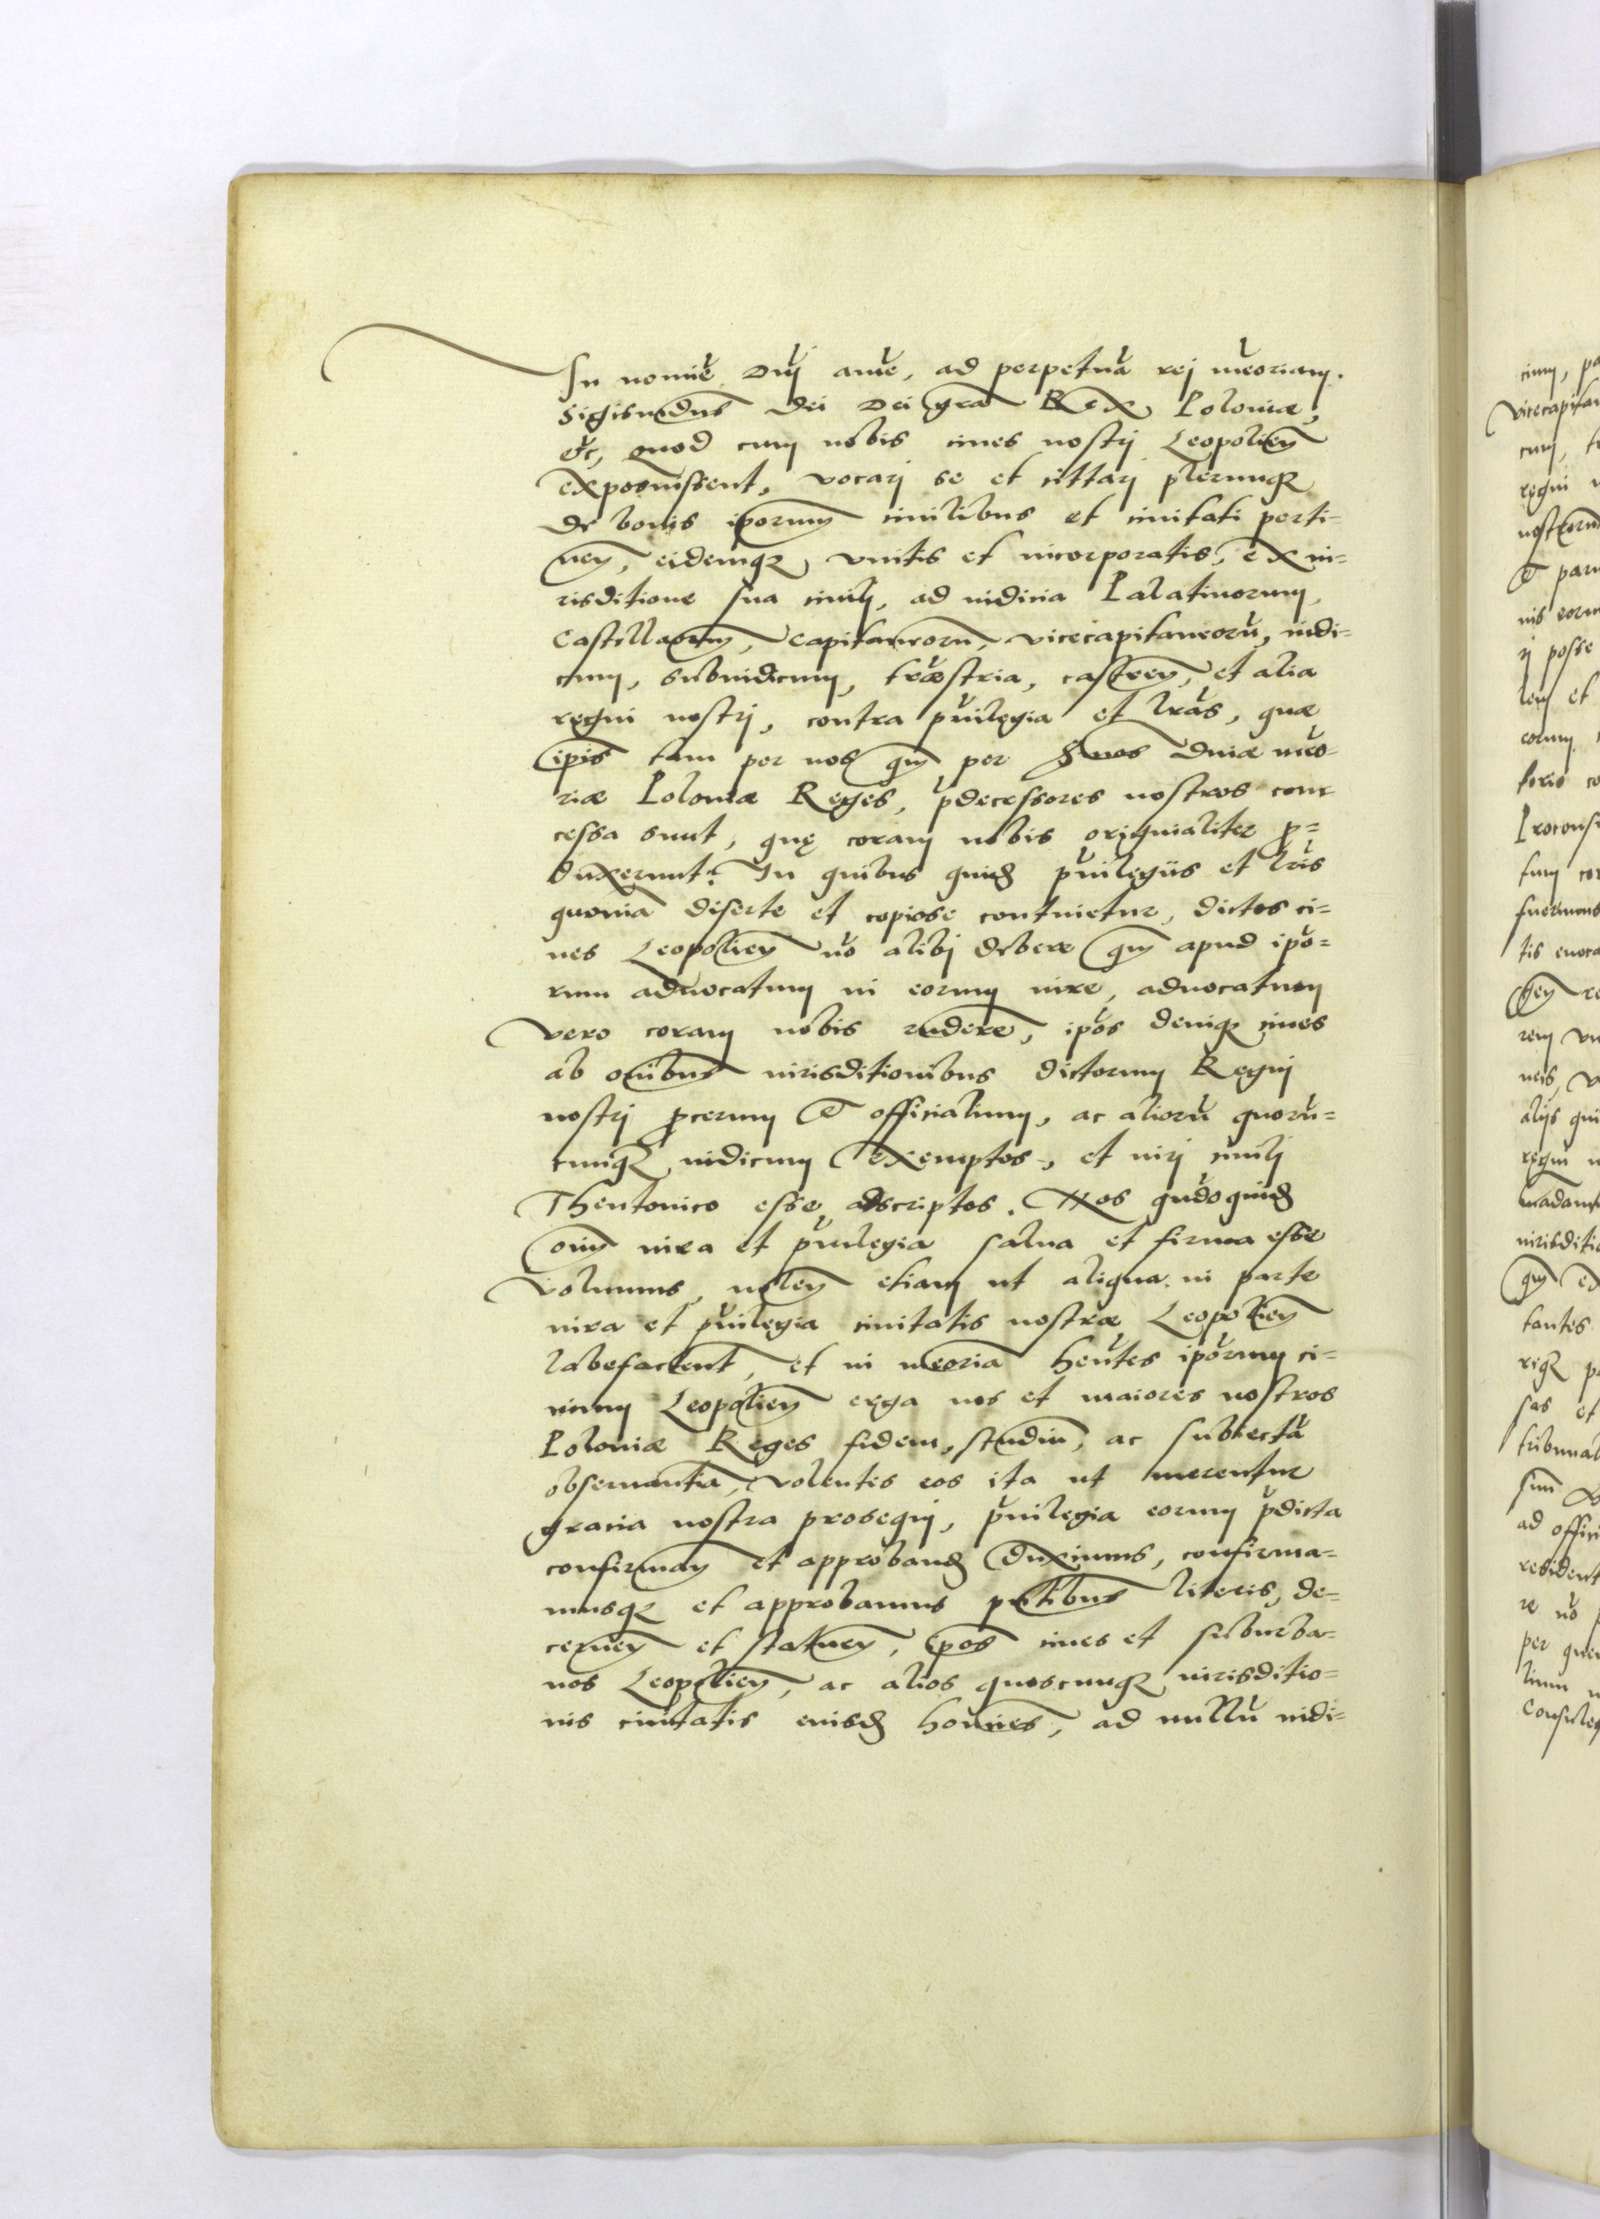 In nomie Dnj ame, ad perpetua rej meoriam.
Sigismdus dei Dei gra Rex Poloniæ,
&c, quod cum nobis ciues nostrj Leopolien
exposuissent, vocarj se et cittarj plerumq3
de bonis iporum ciuilibus et ciuitati perti=
nen, eidemq3 vnitis et incorporatis, ex iu=
risditione sua ciuilj, ad iudicia Palatinorum,
Castellaorum, Capitaneoru, vicecapitaneoru, iudi=
cum, subiudicum, træstria, castren, et alia
regni nostrj, contra puilegia et lras, quæ
ipis tam per nos qm per Smos Diuæ meo=
riæ Poloniæ Reges, pdecessores nostros con=
cessa sunt, quę coram nobis originaliter p=
duxerunt: In quibus quid puilegiis et lris
quonia diserte et copiose continetur, dictos ci=
ues Leopolien no alibj debere qm apud ipo=
rum aduocatum in eorum iure, aduocatum
vero coram nobis rndere, ipos deniq3 ciues
ab oibus iurisditionibus dictorum Regnj
nostrj pcerum & officialium, ac alioru quoru=
cunq3 iudicum exemptos, et iurj ciuilj
Theutonico esse adscriptos. Nos qudoquid
oim iura et puilegia salua et firma esse
volumus, nolen etiam ut aliqua in parte
iura et puilegia ciuitatis nostræ Leopolien
labefactent, et in meoria hentes iporum ci=
uium Leopolien erga nos et maiores nostros
Poloniæ Reges fidem, studiu, ac subiecta
obseruantia, volentes eos ita ut merentur
gracia nostra prosequj, puilegia eorum pdicta
confirman et approband duximus, confirma=
musq3 et approbamus pntibus literis, de=
cernen et statuen, ipos ciues et suburba=
nos Leopolien, ac alios quoscunq3 iurisditio=
nis ciuitatis eiusd homies, ad nullu iudi=